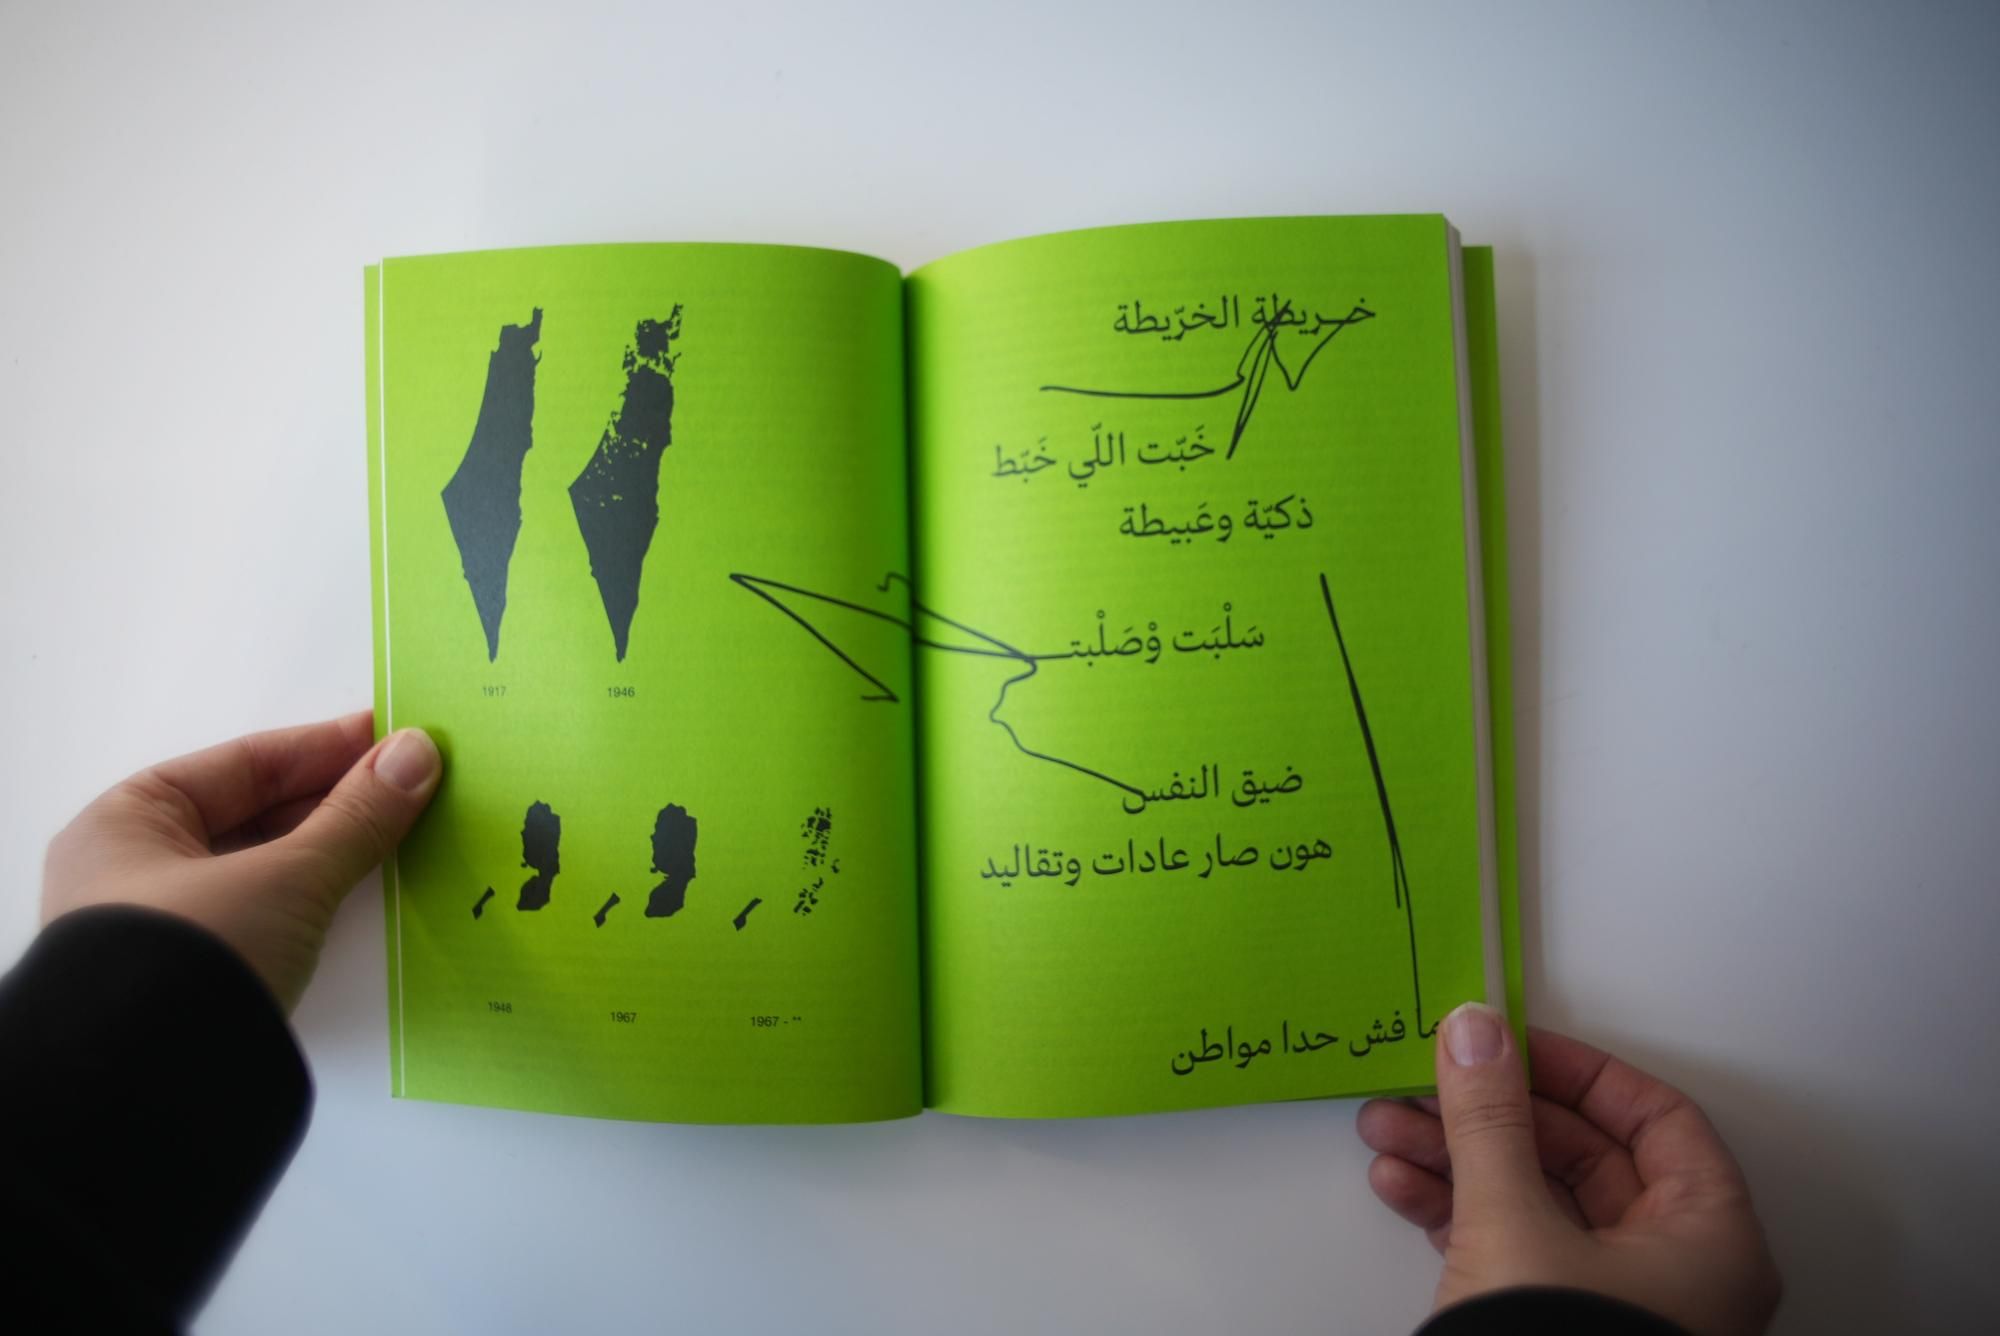 1917
1946
1948
1967
1967 - **
خريطة الخرّيطة
خَبّت اللّي خَبّط
ذكيّة وعَبيطة
سَلْبَت وْصَلْبتـ
ضيق النفس
هون صار عادات وتقاليد
ما فش حدا مواطن